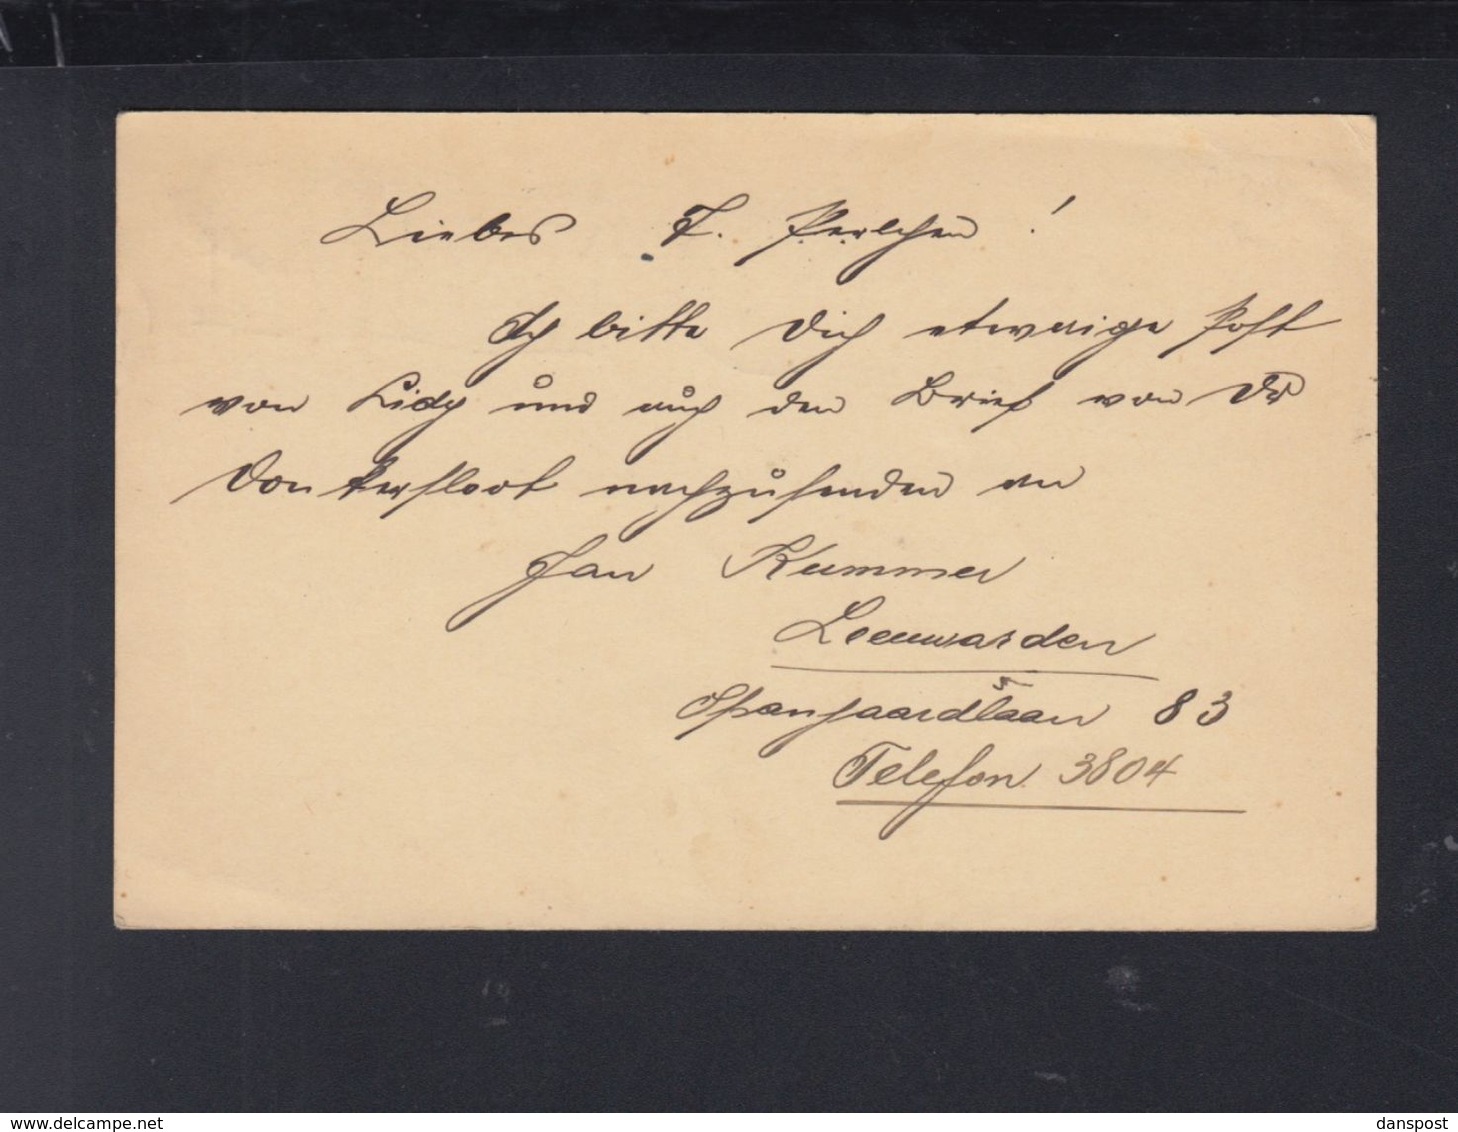 Liebes T. Perlchen!
Ich bitte Dich etwaige Post
von Lidy und auch den Brief von Dr
Donkersloot nachzusenden an
Jan Kummer
Leeuwarden
Spanjaardslaan 83
Telefon 3804
danspost
www.delcampe.net